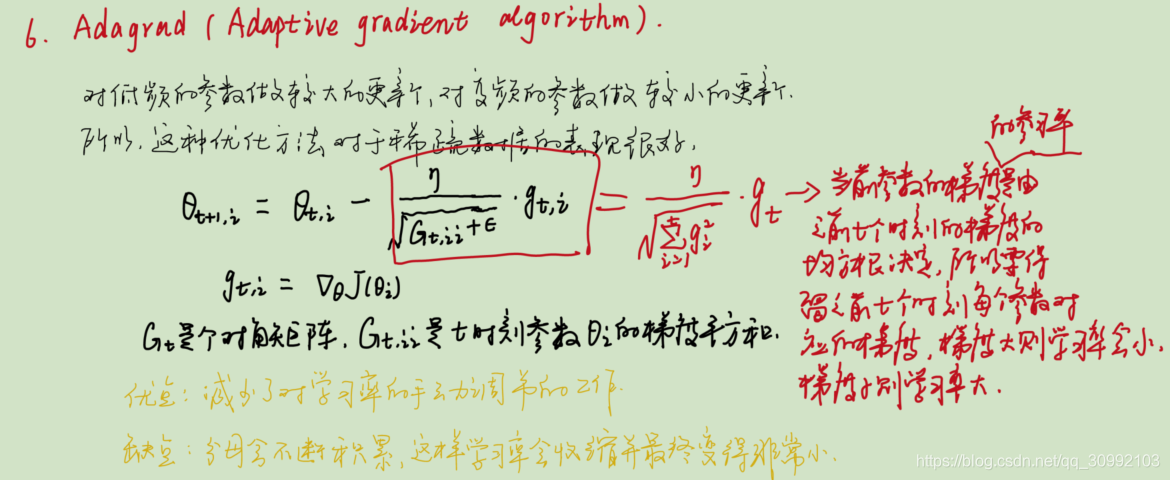 6. Adagrad (Adaptive gradient algorithm).
对低频的参数做较大的更新,对高频的参数做较小的更新.
所以,这种优化方法对于稀疏数据的表现很好.
θt+1,i = θt,i − η/√(Gt,ii+ϵ) · gt,i = η/√(∑_{i=1}^{t} g_i^2) · gt →
gt,i = ∇θJ(θi)
Gt是个对角矩阵,Gt,ii是t时刻参数θi的梯度平方和.
优点:减少了对学习率的手动调节的工作.
缺点:分母会不断积累,这样学习率会收缩并最终变得非常小.
的学习率
当前参数的梯度是由
之前t个时刻的梯度的
均方根决定,所以要保
留之前t个时刻每个参数对
应的梯度,梯度大则学习率会小,
梯度小则学习率大.
https://blog.csdn.net/qq_30992103